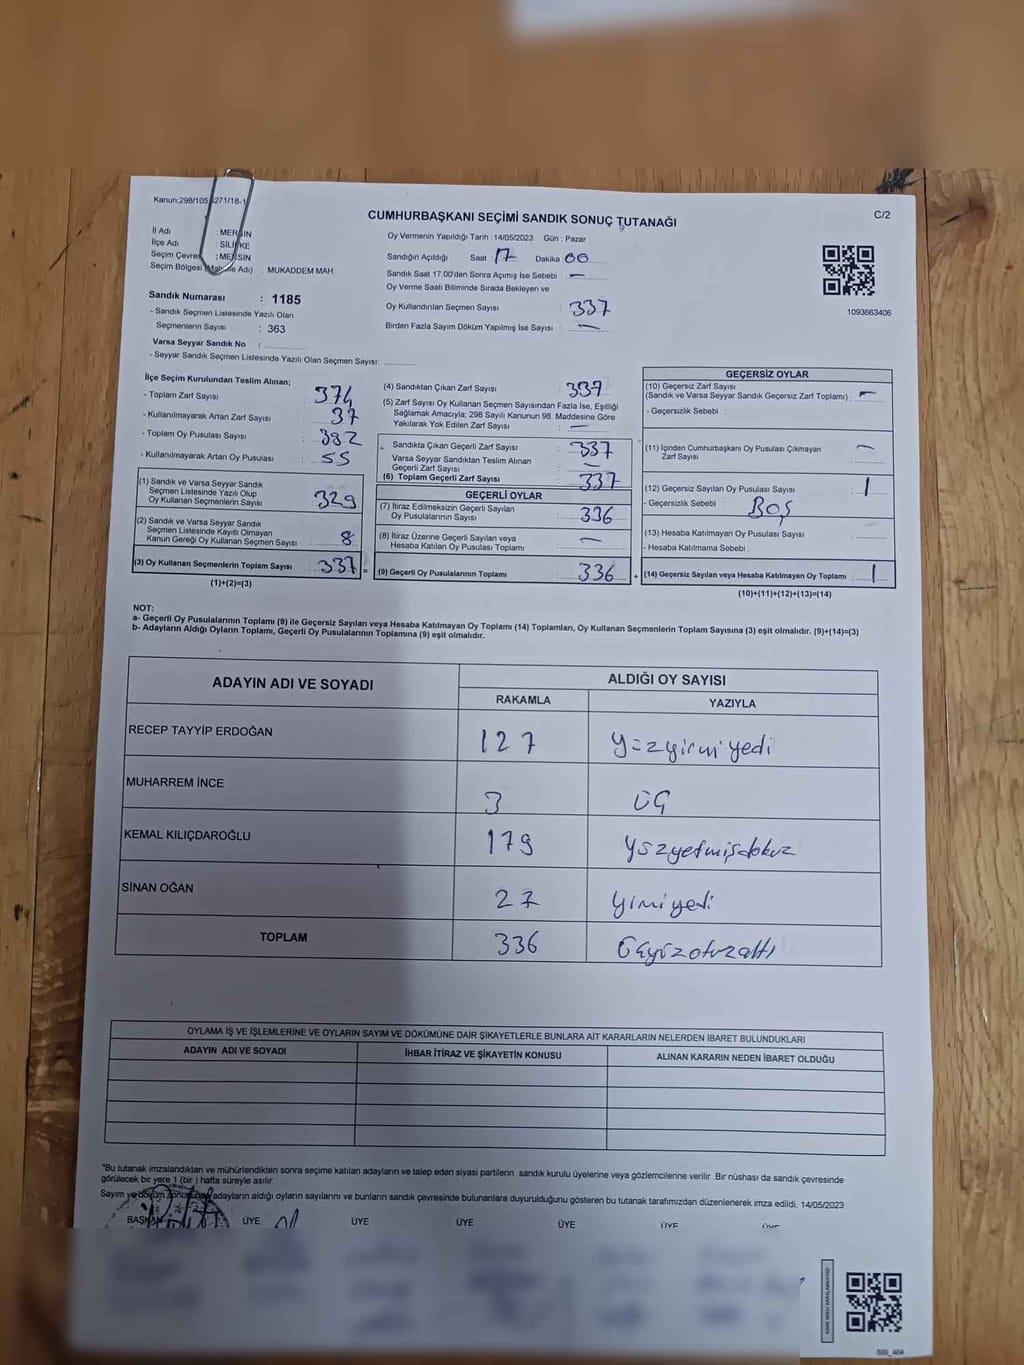 Kanun;298/105,6271/18-1
CUMHURBAŞKANI SEÇİMİ SANDIK SONUÇ TUTANAĞI
C/2
İl Adı : MERSİN
İlçe Adı : SİLİFKE
Seçim Çevresi : MERSİN
Seçim Bölgesi (Mahalle Adı) : MUKADDEM MAH.
Oy Vermenin Yapıldığı Tarih : 14/05/2023 Gün : Pazar
Sandığın Açıldığı Saat 17 Dakika 00
Sandık Saat 17:00'den Sonra Açımış İse Sebebi : —
Oy Verme Saati Bitiminde Sırada Bekleyen ve
Oy Kullandırılan Seçmen Sayısı : 337
Birden Fazla Sayım Döküm Yapılmış İse Sayısı : —
1093663406
Sandık Numarası : 1185
- Sandık Seçmen Listesinde Yazılı Olan
Seçmenlerin Sayısı : 363
Varsa Seyyar Sandık No :
- Seyyar Sandık Seçmen Listesinde Yazılı Olan Seçmen Sayısı:
İlçe Seçim Kurulundan Teslim Alınan;
- Toplam Zarf Sayısı : 374
- Kullanılmayarak Artan Zarf Sayısı : 37
- Toplam Oy Pusulası Sayısı : 392
- Kullanılmayarak Artan Oy Pusulası : 55
(1) Sandık ve Varsa Seyyar Sandık
Seçmen Listesinde Yazılı Olup
Oy Kullanan Seçmenlerin Sayısı : 329
(2) Sandık ve Varsa Seyyar Sandık
Seçmen Listesinde Kayıtlı Olmayan
Kanun Gereği Oy Kullanan Seçmen Sayısı : 8
(3) Oy Kullanan Seçmenlerin Toplam Sayısı : 337
(1)+(2)=(3)
(4) Sandıktan Çıkan Zarf Sayısı : 337
(5) Zarf Sayısı Oy Kullanan Seçmen Sayısından Fazla İse, Eşitliği
Sağlamak Amacıyla; 298 Sayılı Kanunun 98. Maddesine Göre
Yakılarak Yok Edilen Zarf Sayısı : —
Sandıkta Çıkan Geçerli Zarf Sayısı : 337
Varsa Seyyar Sandıktan Teslim Alınan
Geçerli Zarf Sayısı : —
(6) Toplam Geçerli Zarf Sayısı : 337
GEÇERLİ OYLAR
(7) İtiraz Edilmeksizin Geçerli Sayılan
Oy Pusulalarının Sayısı : 336
(8) İtiraz Üzerine Geçerli Sayılan veya
Hesaba Katılan Oy Pusulası Toplamı : —
(9) Geçerli Oy Pusulalarının Toplamı : 336
GEÇERSİZ OYLAR
(10) Geçersiz Zarf Sayısı
(Sandık ve Varsa Seyyar Sandık Geçersiz Zarf Toplamı) : —
- Geçersizlik Sebebi :
(11) İçinden Cumhurbaşkanı Oy Pusulası Çıkmayan
Zarf Sayısı : —
(12) Geçersiz Sayılan Oy Pusulası Sayısı : 1
- Geçersizlik Sebebi : BOŞ
(13) Hesaba Katılmayan Oy Pusulası Sayısı :
- Hesaba Katılmama Sebebi :
(14) Geçersiz Sayılan veya Hesaba Katılmayan Oy Toplamı : 1
(10)+(11)+(12)+(13)=(14)
NOT:
a- Geçerli Oy Pusulalarının Toplamı (9) ile Geçersiz Sayılan veya Hesaba Katılmayan Oy Toplamı (14) Toplamları, Oy Kullanan Seçmenlerin Toplam Sayısına (3) eşit olmalıdır. (9)+(14)=(3)
b- Adayların Aldığı Oyların Toplamı, Geçerli Oy Pusulalarının Toplamına (9) eşit olmalıdır.
ADAYIN ADI VE SOYADI
ALDIĞI OY SAYISI
RAKAMLA YAZIYLA
RECEP TAYYİP ERDOĞAN 127 yüzyirmiyedi
MUHARREM İNCE 3 ÜÇ
KEMAL KILIÇDAROĞLU 179 yüzyetmişdokuz
SİNAN OĞAN 27 yirmiyedi
TOPLAM 336 üçyüzotuzaltı
OYLAMA İŞ VE İŞLEMLERİNE VE OYLARIN SAYIM VE DÖKÜMÜNE DAİR ŞİKAYETLERLE BUNLARA AİT KARARLARIN NELERDEN İBARET BULUNDUKLARI
ADAYIN ADI VE SOYADI İHBAR İTİRAZ VE ŞİKAYETİN KONUSU ALINAN KARARIN NEDEN İBARET OLDUĞU
"Bu tutanak imzalandıktan ve mühürlendikten sonra seçime katılan adayların ve talep eden siyasi partilerin sandık kurulu üyelerine veya gözlemcilerine verilir. Bir nüshası da sandık çevresinde
görülecek bir yere 1 (bir) hafta süreyle asılır.
Sayım ve döküm sonucunda adayların aldığı oyların sayılarını ve bunların sandık çevresinde bulunanlara duyurulduğunu gösteren bu tutanak tarafımızdan düzenlenerek imza edildi. 14/05/2023
BAŞKAN ÜYE ÜYE ÜYE ÜYE ÜYE ÜYE